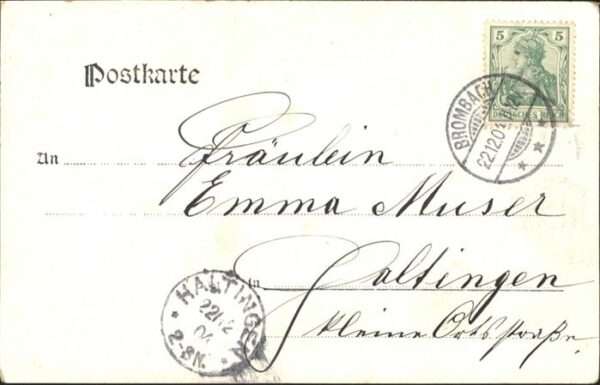 5 5
DEUTSCHES REICH
Postkarte
BROMBACH
22.12.04
An Fräulein
Emma Muser
in Haltingen
kleine Ortsstraße.
HALTINGEN
22.12
04
2-3N.